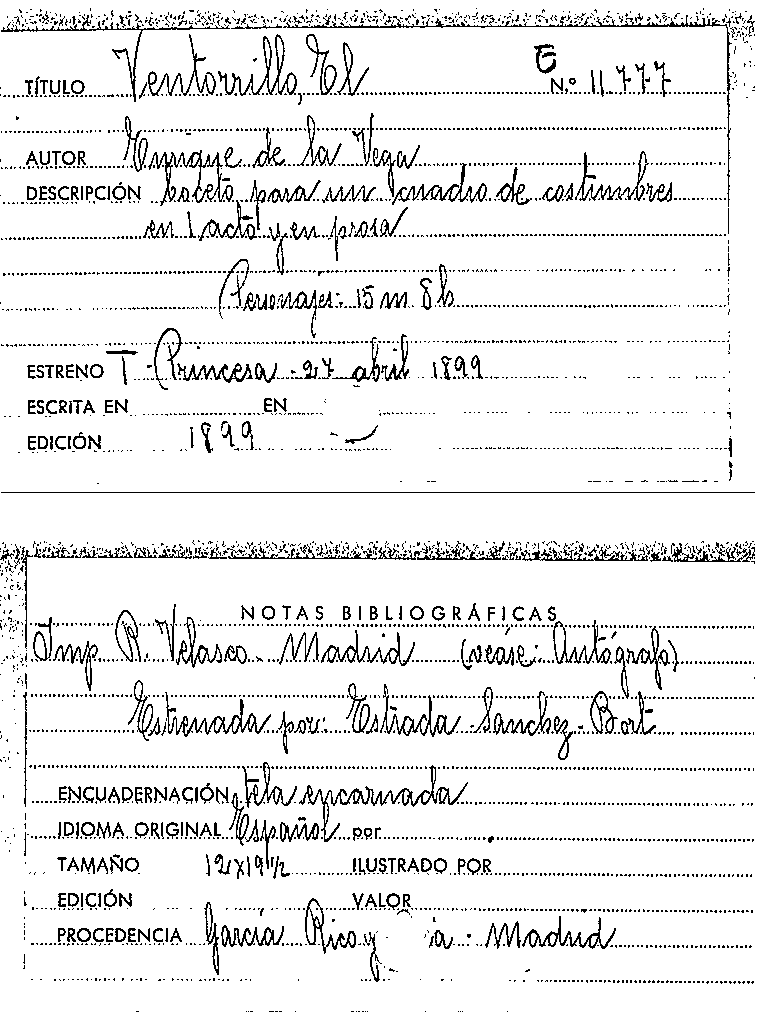 TÍTULO Ventorrillo, El
N.º 11777
AUTOR Enrique de la Vega
DESCRIPCIÓN boceto para un cuadro de costumbres
en 1 acto y en prosa
Personajes: 15 m 8 h
ESTRENO T. Princesa - 27 abril 1899
ESCRITA EN EN
EDICIÓN 1899
NOTAS BIBLIOGRÁFICAS
Imp R. Velasco. Madrid (veáse: Autógrafo)
Estrenada por: Estrada - Sanchez - Bort
ENCUADERNACIÓN tela encarnada
IDIOMA ORIGINAL Español por
TAMAÑO 12x19 1/2 ILUSTRADO POR
EDICIÓN VALOR
PROCEDENCIA García Rico y ía - Madrid